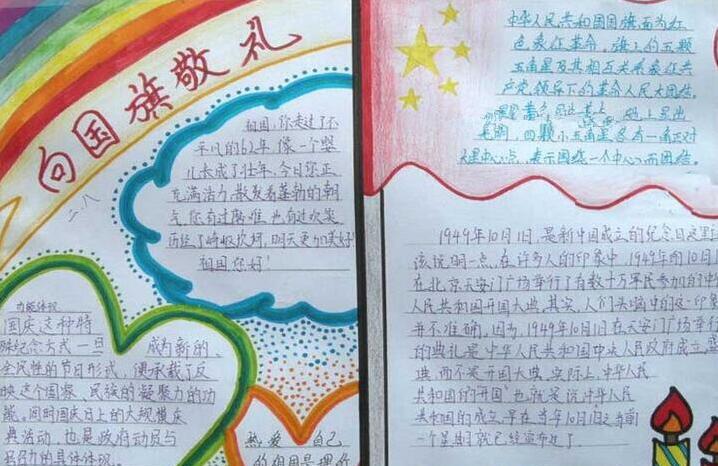 向国旗敬礼
二八
祖国,你走过了不
平凡的62年,像一个婴
儿长成了壮年,今日你正
充满活力,散发着蓬勃的朝
气,您有过磨难,也有过欢笑
历经了崎岖坎坷,明天更加美好!
祖国您好!
功能体现
国庆这种特
殊纪念方式一旦
成为新的、
全民性的节日形式,便承载了反
映这个国家、民族的凝聚力的功
能。同时国庆日上的大规模庆
典活动,也是政府动员与
号召力的具体体现。
热爱 自己
的祖国是理所
中华人民共和国国旗面为红
色,象征革命。旗上的五颗
五角星及其相互关系象征共
产党领导下的革命人民大团结。
星 黄色 地上显出
光明,四颗小五角星各有一角正对
大星中心点,表示围绕一个中心而团结。
1949年10月1日,是新中国成立的纪念日。这里
该说明一点,在许多人的印象中,1949年的10月1
在北京天安门广场举行了有数十万军民参加的中
人民共和国开国大典。其实,人们头脑中的这一印象
并不准确。因为,1949年10月1日在天安门广场举行
的典礼是中华人民共和国中央人民政府成立盛
典,而不是开国大典。实际上,中华人民
共和国的“开国”也就是说中华人民
共和国的成立,早在当年10月1日之前
一个星期就已经宣布过了